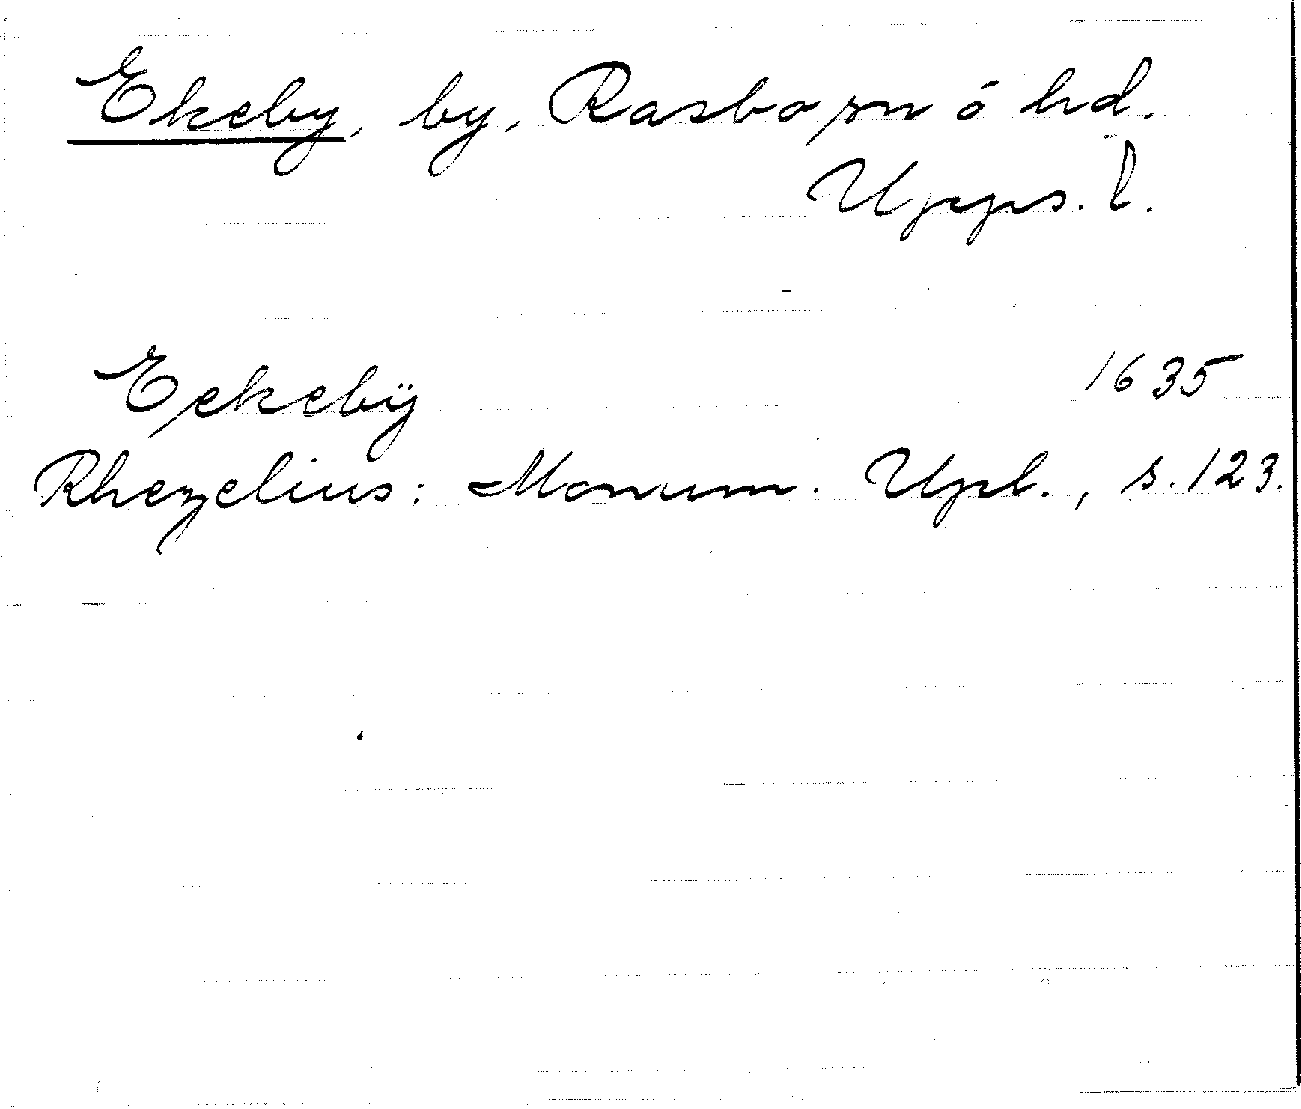 Ekeby, by, Rasbo sn ö hd.
Upps. l.
Eekebÿ 1635
Rhezelius: Monum. Upl., s. 123.